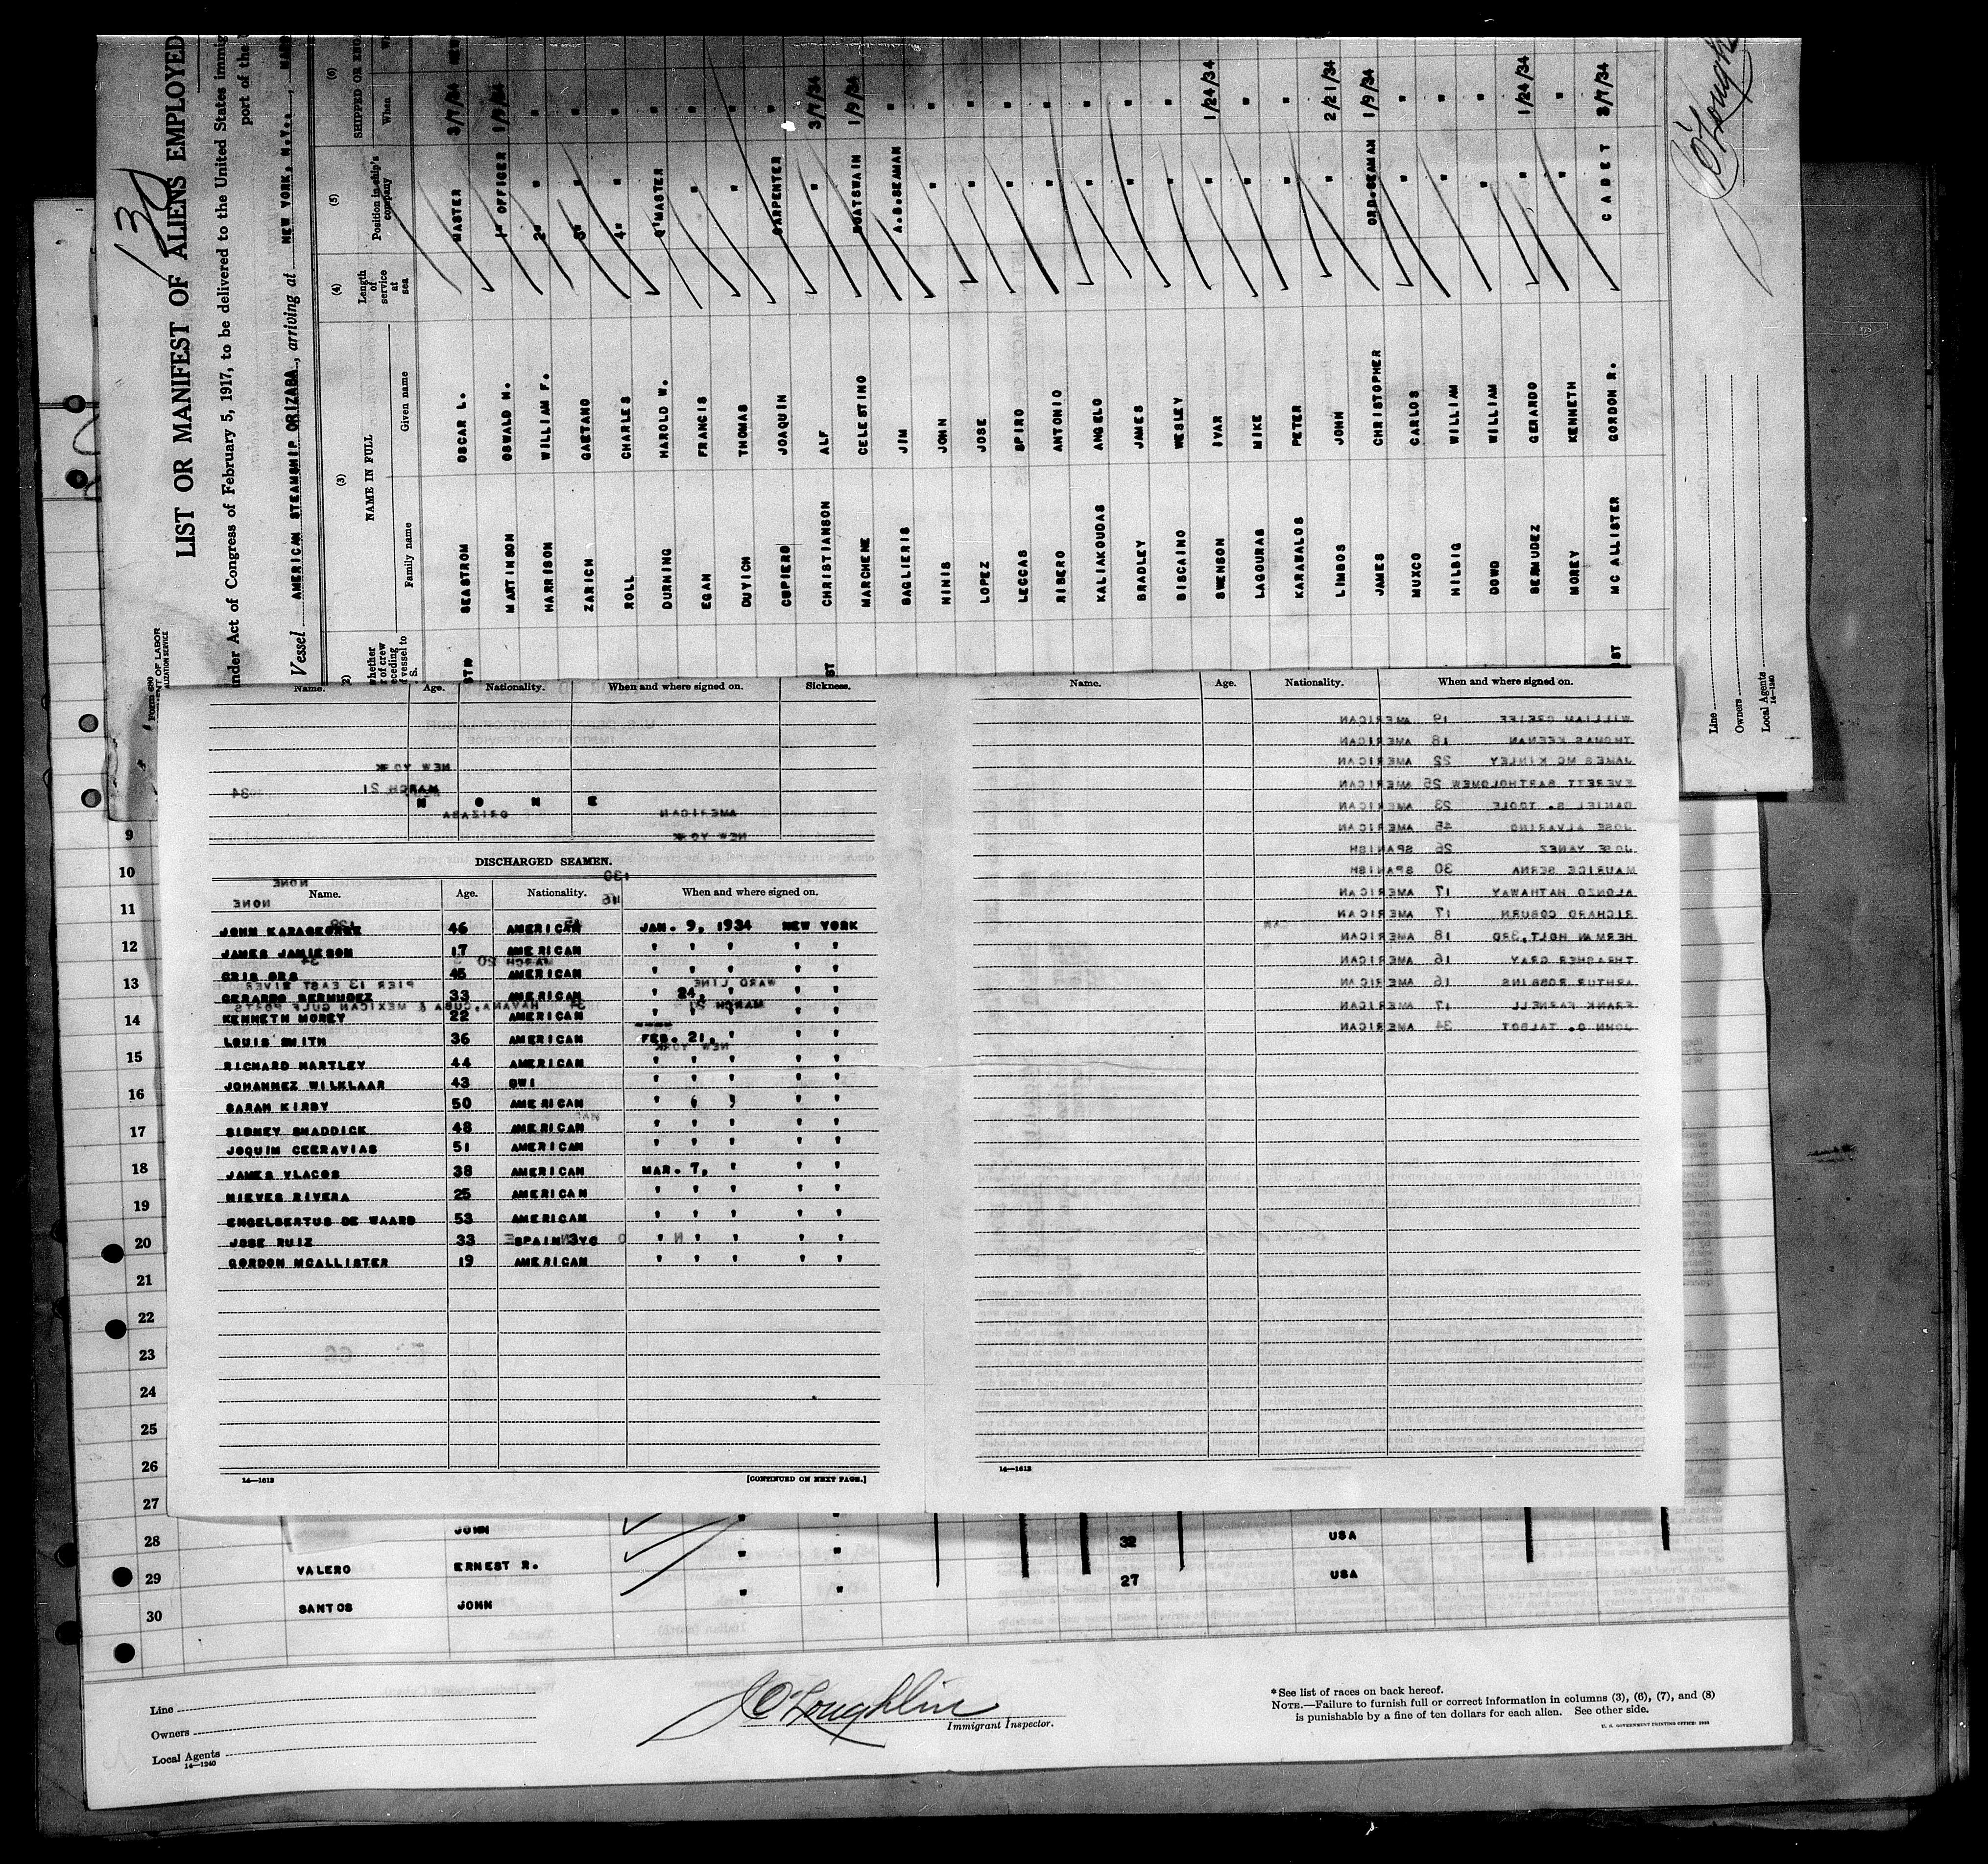 130
LIST OR MANIFEST OF ALIENS EMPLOYED
under Act of Congress of February 5, 1917, to be delivered to the United States immig
port of the
Vessel AMERICAN STEAMSHIP ORIZABA, arriving at NEW YORK, N.Y.,
Form 680
(3) (4) (5) (6)
NAME IN FULL
Family name Given name
Length of service at sea
Position in ship's company
SHIPPED OR ENG
When
SEASTROM OSCAR L. MASTER 3/7/34 NEW
MARTINSON OSWALD M. 1" OFFICER 1/9/34
HARRISON WILLIAM F. 2" " "
ZARICH GAETANO 3" " "
ROLL CHARLES 4" " "
DURNING HAROLD W. Q'MASTER "
EGAN FRANCIS " "
DUVICH THOMAS " "
CUPIERO JOAQUIN CARPENTER "
CHRISTIANSON ALF " 3/7/34
MARCHENE CELESTINO BOATSWAIN 1/9/34
BAGLIERIS JIM A.B.SEAMAN "
NINIS JOHN " "
LOPEZ JOSE " "
LECCAS SPIRO " "
RIBERO ANTONIO " "
KALIAKOUDAS ANGELO " "
BRADLEY JAMES " "
BISCAINO WESLEY " "
SWENSON IVAR " 1/24/34
LAGOURAS MIKE " "
KARABALOS PETER " "
LIMBOS JOHN " 2/21/34
JAMES CHRISTOPHER ORD.SEAMAN 1/9/34
MUXCO CARLOS " "
HILBIG WILLIAM " "
DOWD WILLIAM " "
BERMUDEZ GERARDO " 1/24/34
MOREY KENNETH " "
MC ALLISTER GORDON R. CADET 3/7/34
O'Loughlin
Line
Owners
Local Agents
14—1240
Name. Age. Nationality. When and where signed on. Sickness.
N O N E
DISCHARGED SEAMEN.
Name. Age. Nationality. When and where signed on.
JOHN KARAGEORGE 46 AMERICAN JAN. 9, 1934 NEW YORK
JAMES JAMIESON 17 AMERICAN " " " " "
CRIS ORS 45 AMERICAN " " " " "
GERARDO BERMUDEZ 33 AMERICAN " 24, " " "
KENNETH MOREY 22 AMERICAN " " " " "
LOUIS SMITH 36 AMERICAN FEB. 21, " " "
RICHARD HARTLEY 44 AMERICAN " " " " "
JOHANNEZ WILKLAAR 43 DWI " " " " "
SARAH KIRBY 50 AMERICAN " " " " "
SIDNEY SHADDICK 48 AMERICAN " " " " "
JOQUIM CEERAVIAS 51 AMERICAN " " " " "
JAMES VLACOS 38 AMERICAN MAR. 7, " " "
NIEVES RIVERA 25 AMERICAN " " " " "
ENGELBERTUS DE WAARD 53 AMERICAN " " " " "
JOSE RUIZ 33 SPAIN " " " " "
GORDON MCALLISTER 19 AMERICAN " " " " "
14—1613 [CONTINUED ON NEXT PAGE.]
Name. Age. Nationality. When and where signed on.
WILLIAM GREIFF 19 AMERICAN
THOMAS KEENAN 18 AMERICAN
JAMES MC KINLEY 22 AMERICAN
EVERETT BARTHOLOMEW 25 AMERICAN
DANIEL S. TOOLE 23 AMERICAN
JOSE ALVARINO 45 AMERICAN
JOSE YANEZ 26 SPANISH
MAURICE SERNA 30 SPANISH
ALONZO HATHAWAY 17 AMERICAN
RICHARD COBURN 17 AMERICAN
HERMAN HOLT,3RD 18 AMERICAN
THRASHER GRAY 16 AMERICAN
ARTHUR ROBBINS 16 AMERICAN
FRANK FARNELL 17 AMERICAN
JOHN O. TALBOT 34 AMERICAN
14—1613
9
10
11
12
13
14
15
16
17
18
19
20
21
22
23
24
25
26
27
28 JOHN
29 VALERO ERNEST R. " " 32 USA
30 SANTOS JOHN " " 27 USA
Line
Owners
Local Agents
14—1240
O'Loughlin
Immigrant Inspector.
*See list of races on back hereof.
NOTE.—Failure to furnish full or correct information in columns (3), (6), (7), and (8)
is punishable by a fine of ten dollars for each alien. See other side.
U. S. GOVERNMENT PRINTING OFFICE